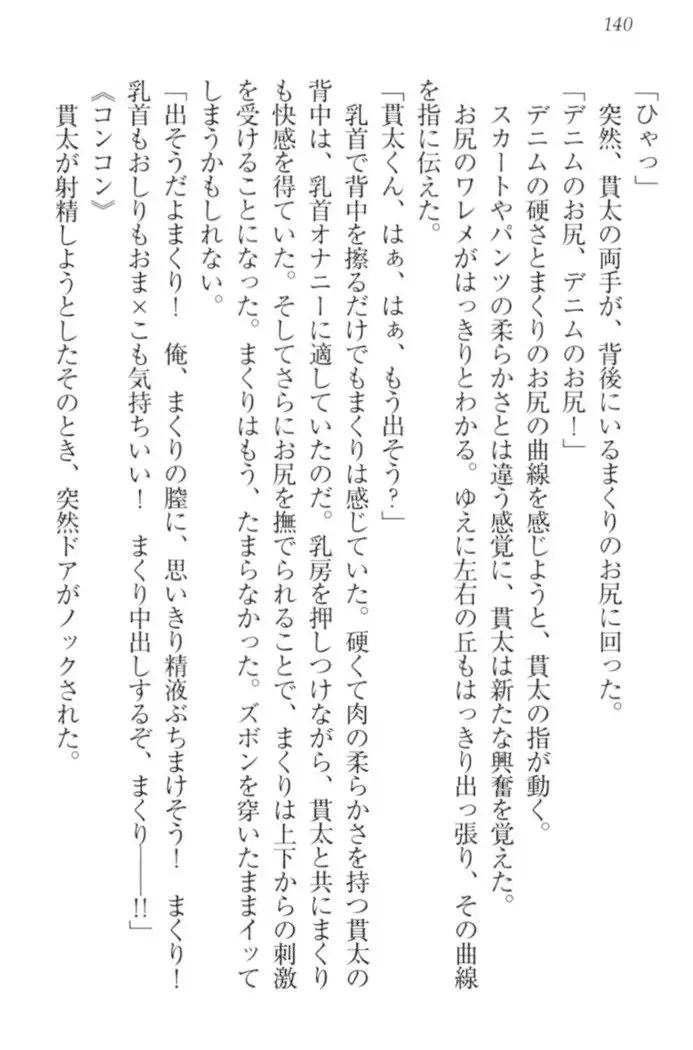 140
「ひゃっ」
突然、貫太の両手が、背後にいるまくりのお尻に回った。
「デニムのお尻、デニムのお尻！」
デニムの硬さとまくりのお尻の曲線を感じようと、貫太の指が動く。
スカートやパンツの柔らかさとは違う感覚に、貫太は新たな興奮を覚えた。
お尻のワレメがはっきりとわかる。ゆえに左右の丘もはっきり出っ張り、その曲線
を指に伝えた。
「貫太くん、はぁ、はぁ、もう出そう？」
乳首で背中を擦るだけでもまくりは感じていた。硬くて肉の柔らかさを持つ貫太の
背中は、乳首オナニーに適していたのだ。乳房を押しつけながら、貫太と共にまくり
も快感を得ていた。そしてさらにお尻を撫でられることで、まくりは上下からの刺激
を受けることになった。まくりはもう、たまらなかった。ズボンを穿いたままイッて
しまうかもしれない。
「出そうだよまくり！　俺、まくりの膣に、思いきり精液ぶちまけそう！　まくり！
乳首もおしりもおま×こも気持ちいい！　まくり中出しするぞ、まくり――!!」
《コンコン》
貫太が射精しようとしたそのとき、突然ドアがノックされた。